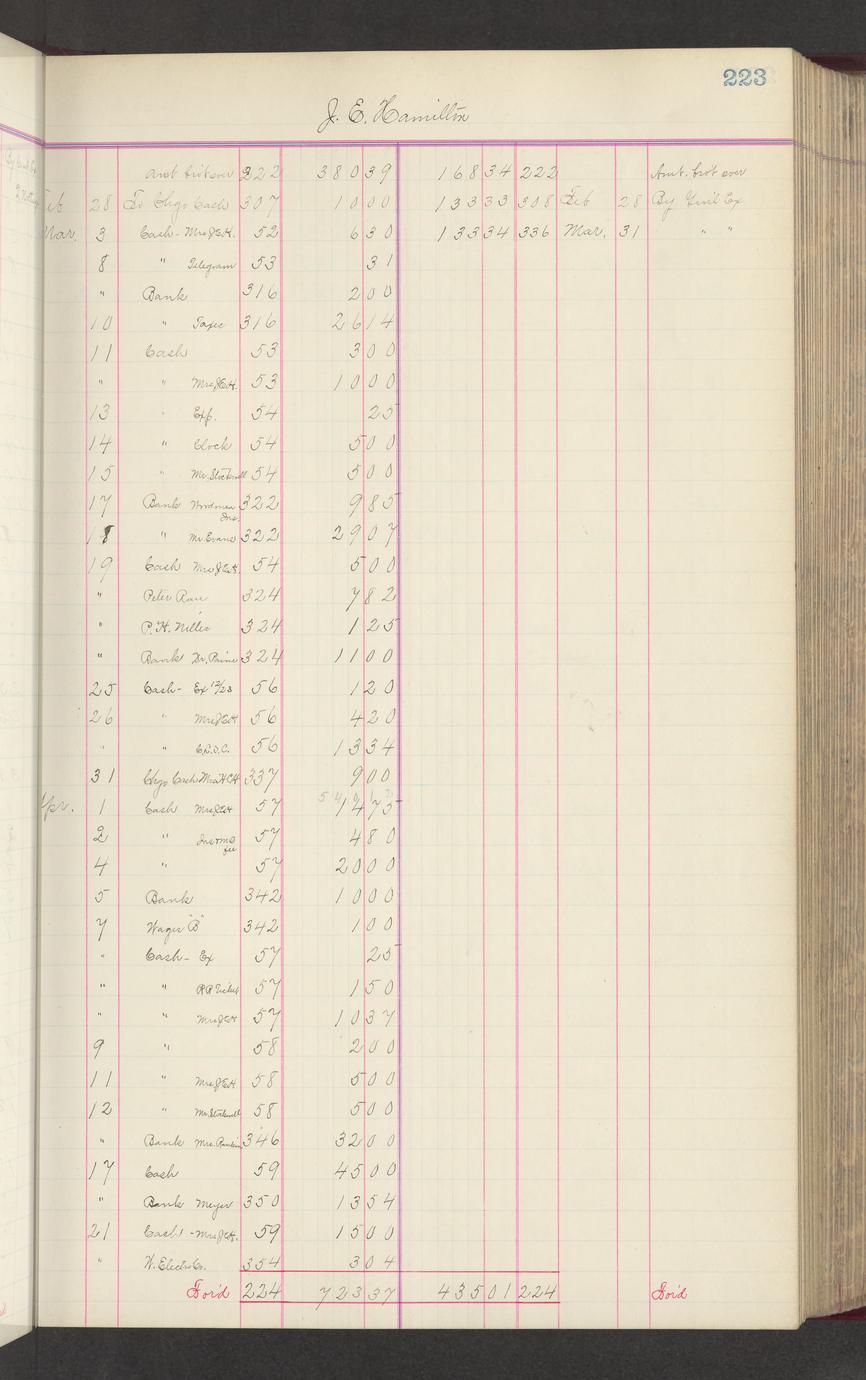 223
J. E. Hamilton
Amt brt over 222 380 39 168 34 222 Amt. brt over
Feb 28 To Chgo Cash 307 10 00 133 33 308 Feb 28 By Genl Ex
Mar. 3 Cash - Mrs J.E.H. 52 6 30 133 34 336 Mar. 31 " "
8 " Telegram 53 31
" Bank 316 2 00
10 " Taxes 316 26 14
11 Cash 53 3 00
" " Mrs J.E.H. 53 10 00
13 " Exp. 54 25
14 " Clock 54 5 00
15 " Mr. Stockwell 54 5 00
17 Bank Woodmen Ins. 322 9 85
18 " Mr. Evans 322 29 07
19 Cash Mrs J.E.H. 54 5 00
" Peter Rau 324 7 82
" P. H. 324 1 25
" Bank Dr. 324 11 00
25 Cash - Ex 56 1 20
26 " Mrs J.E.H 56 4 20
" " 56 13 34
31 Chgo Cash Mrs H 337 9 00
Apr. 1 Cash Mrs J.E.H 57 14 75
2 " fee 57 4 80
4 " 57 20 00
5 Bank 342 10 00
7 Wages "B" 342 1 00
" Cash - Ex 57 25
" " RR Ticket 57 1 50
" " Mrs J.E.H 57 10 37
9 " 58 2 00
11 " Mrs J.E.H 58 5 00
12 " Mr. Stockwell 58 5 00
" Bank Mrs. 346 32 00
17 Cash 59 45 00
" Bank Meyer 350 13 54
21 Cash - Mrs J.E.H. 59 15 00
" W. Electric Co. 354 3 04
For'd 224 723 37 435 01 224 For'd